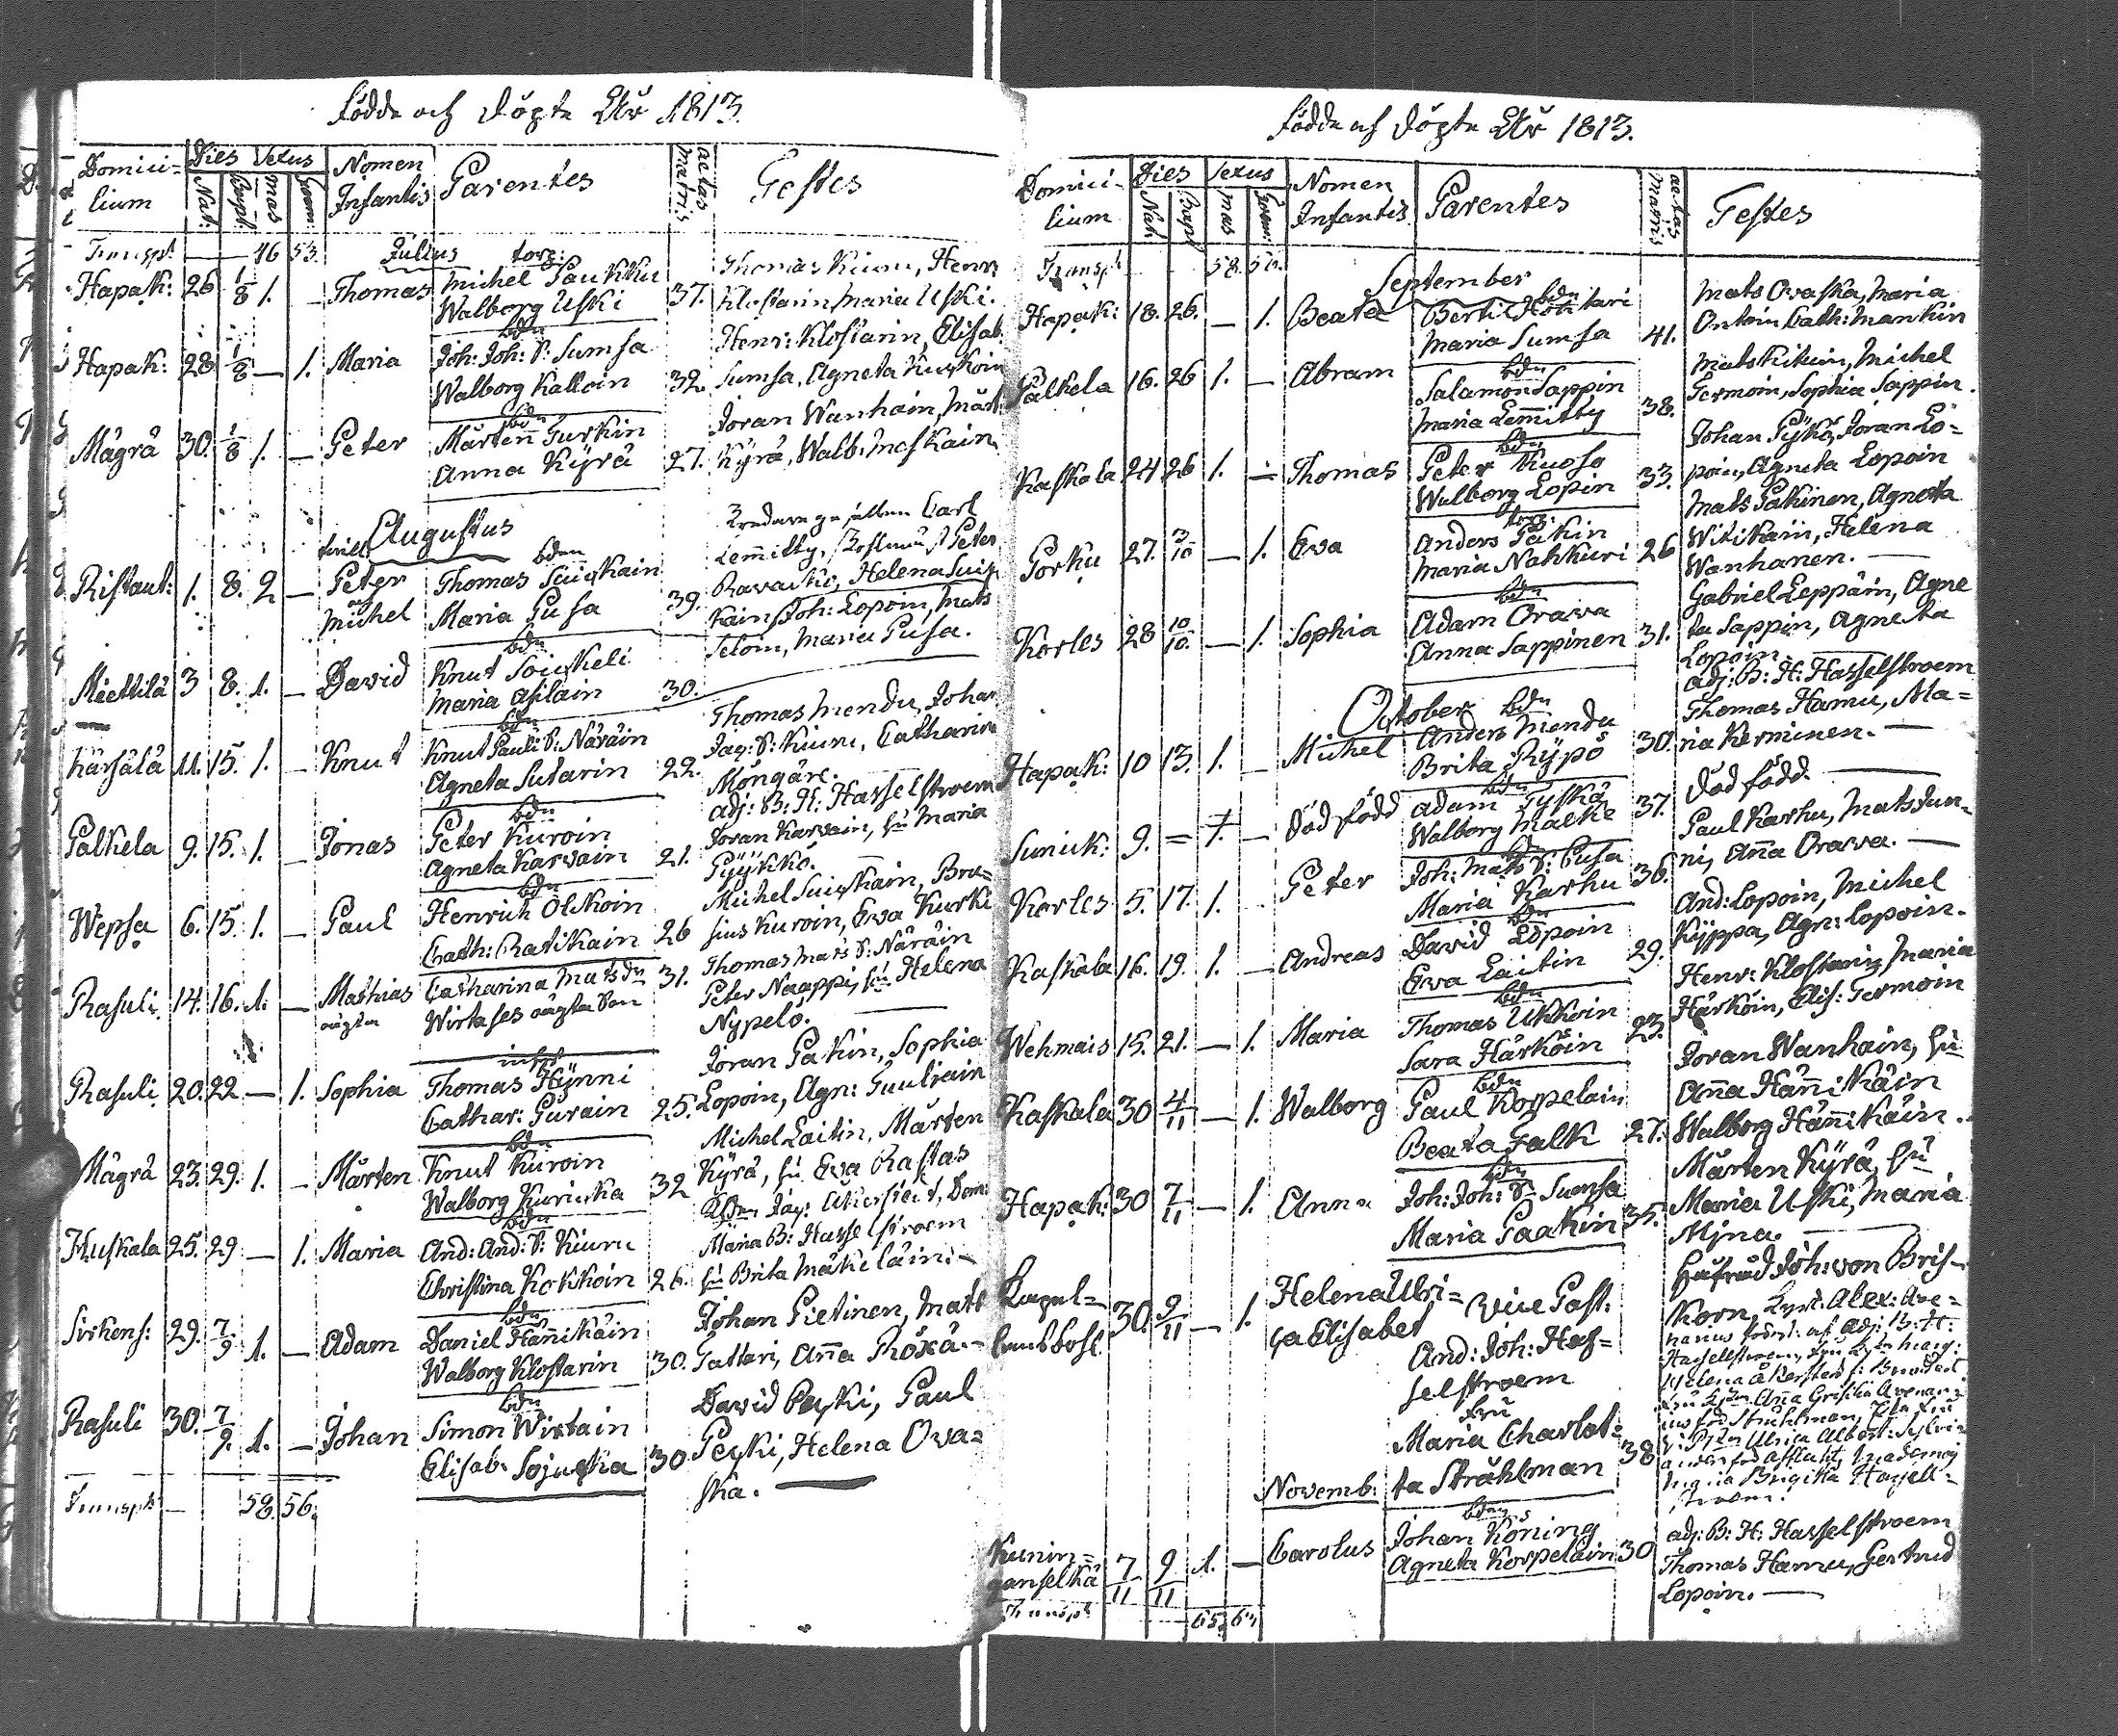 Födde och Döpte Åhr 1813.
Domici-
lium
Dies
Nat:
Bapt:
Sexus
mas
Foem:
Nomen
Infantis
Parentes
aetas
Matris
Testes
Transpt — 46 53.
Julius torp:
Hapak: 26 1/8 1. — Thomas Michel Paukku
Walborg Uski 37.
Thomas Kiuru, Henr:
Klostarin, Maria Uski.
Hapak: 28 1/8 — 1. Maria bdn
Joh: Joh: S: Sumsa
Walborg Kalloin 32.
Henr: Klostarin, Elisab:
Sumsa, Agneta Kurkoin
Mägrä 30. 1/8 1. — Peter bdn
Mårten Turkin
Anna Kyrä 27.
Joran Wanhain, Mårt:
Kyrä, Walb: Maskain
Augustus
Ristaut: 1. 8. 2 — Peter
och
Michel
bdn
Thomas Suikkain
Maria Pusa 39.
Carl
Lemmitty, Peter
Helena Suik
kain, Joh: Lopoin, Mats
Maria Pusa.
Miettilä 3 8. 1. — David bdn
Knut Soikkeli
Maria Asilain 30.
Kärsälä 11. 15. 1. — Knut bdn
Knut Pauli S: Näräin
Agneta Sutarin 22.
Thomas Mendu, Johan
Jac: S: Kiuru, Catharin
Möngäre.
Palkela 9. 15. 1. — Jonas bdn
Peter Kuroin
Agneta Karvain 21.
adj: B: H: Hasselstroem
Joran Karvain, hu Maria
Pyykkö.
Wepsa 6. 15. 1. — Paul bdn
Henrich Olskoin
Cath: Ratikain 26
Michel Suikkain, Bru-
sius Kuroin, Ewa Kurki
Rasuli 14. 16. 1. — Mathias
oägta
Catharina Mats dr 31.
Wirtases oägta Son
Thomas Mats S: Näräin
Peter Naappi, hu Helena
Nypelö.
Rasuli 20. 22 — 1. Sophia
Thomas Hynni
Cathar: Purain 25.
Joran Pakin, Sophia
Lopoin, Agn: Tuuliain
Mägrä 23. 29. 1. — Mårten bdn
Knut Kuroin
Walborg Kuriuka 32
Michel Laitin, Mårten
Kyrä, hu Ewa Rastas
Kuskala 25. 29 — 1. Maria bdn
And: And: S: Kiuru
Christina Kokkoin 26.
Jac: Åkerstedt, Dem:
Maria B: Hasselstroem
hu Brita Mäkeläin: —
Sirkens: 29. 7/9 1. — Adam bdn
Daniel Hännikäin
Walborg Klostarin 30.
Johan Pietinen, Matt
Pattari, Anna Röxä —
Rasuli 30. 7/9. 1. — Johan bdn
Simon Wirtain
Elisab: Sojucka 30
David Peyki, Paul
Peyki, Helena Ova-
ska.
Transpt — 58. 56.
Födde och Döpte Åhr 1813.
Domici-
lium
Dies
Nat:
Bapt
Sexus
mas
Foem:
Nomen
Infantis
Parentes
aetas
Matris
Testes
Transpt 58. 56.
September
Hapak: 18. 26. — 1. Beata bdn
Bertil Hötitari
Maria Sumsa 41.
Mats Ovaska, Maria
Ontoin, Cath: Mankin
Palkela 16. 26 1. — Abram bdn
Salamon Sappin
Maria Lemmitty 38.
Mats Kikuin, Michel
Termoin, Sophia Sappin.
Kaskala 24 26 1. — Thomas bdn
Peter Kuoso
Walborg Lopin 33.
Johan Pykö, Joran Lo-
poin, Agneta Lopoin
Porku 27. 3/10 — 1. Ewa torp:
Anders Pakin
Maria Nahkuri 26
Mats Pakinen, Agneta
Witikain, Helena
Wanhanen. —
Korles 28 10/10. — 1. Sophia bdn
Adam Orawa
Anna Sappinen 31.
Gabriel Leppäin, Agne
ta Sappin, Agneta
Lopoin. —
October
Hapak: 10 13. 1. — Michel bdn
Anders Mendu
Brita Rypö 30.
adj: B: H: Hasselstroem
Thomas Hamu, Ma-
ria Kerminen. —
Suriuk: 9. = 1. — Död född bdn
Adam Pyskä
Walborg Malke 37.
Död född. —
Korles 5. 17. 1. Peter bdn
Joh: Mats S: Pusa
Maria Karhu 36.
Paul Karhu, Mats Jun-
ni, Anna Orawa. —
Kaskala 16. 19. 1. — Andreas bdn
David Lopoin
Ewa Laitin 29.
And: Lopoin, Michel
Kyppa, Agn: Lopoin.
Wehmais 15. 21. — 1. Maria bdn
Thomas Ukkoin
Sara Härköin 23.
Henr: Klostarin, Maria
Härköin, Elis: Termoin
Kaskala 30 4/11 — 1. Walborg bdn
Paul Korpelain
Beata Falk 27.
Joran Wanhain, hu
Anna Hännikäin
Walborg Hännikäin.
Hapak: 30 7/11 — 1. Anna bdn
Joh: Joh: S: Sumsa
Maria Paakin 35.
Mårten Kyrä, hu
Maria Uski, Maria
Mjna. —
Kapel-
lans bost: 30. 9/11 — 1. Helena Ulri-
ca Elisabet
Vice Past:
And: Joh: Has-
selstroem
Fru
Maria Charlot-
ta Stråhlman 38
Hofråd Joh: von Bris-
korn, Alex: Ave-
nanus adj: B: H:
Hasselstroem,
Helena Åkerstedt
Anna
Stråhlman,
Ulrica
Birgitta Hassell-
stroem.
Novemb:
Kunin-
ganselkä 7/11 9/11 1. — Carolus bdn
Johan Köning
Agneta Korpelain 30
adj: B: H: Hasselstroem
Thomas Hamu, Gertrud
Lopoin. —
Transpt 65. 63